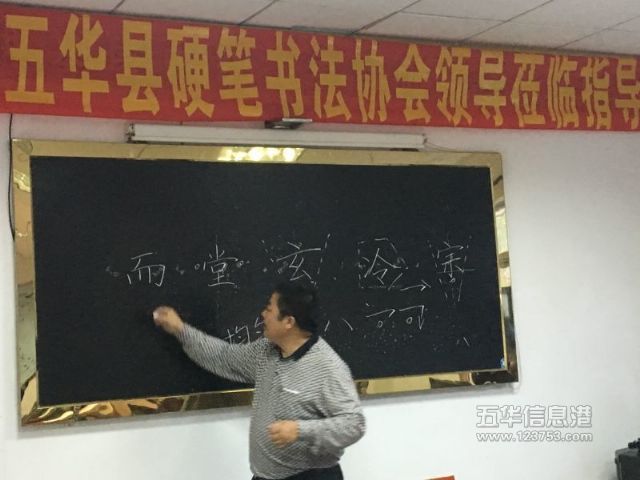 五华县硬笔书法协会领导莅临指导
而 堂 玄 冷 宋
八 河
五华信息港
www.123753.com